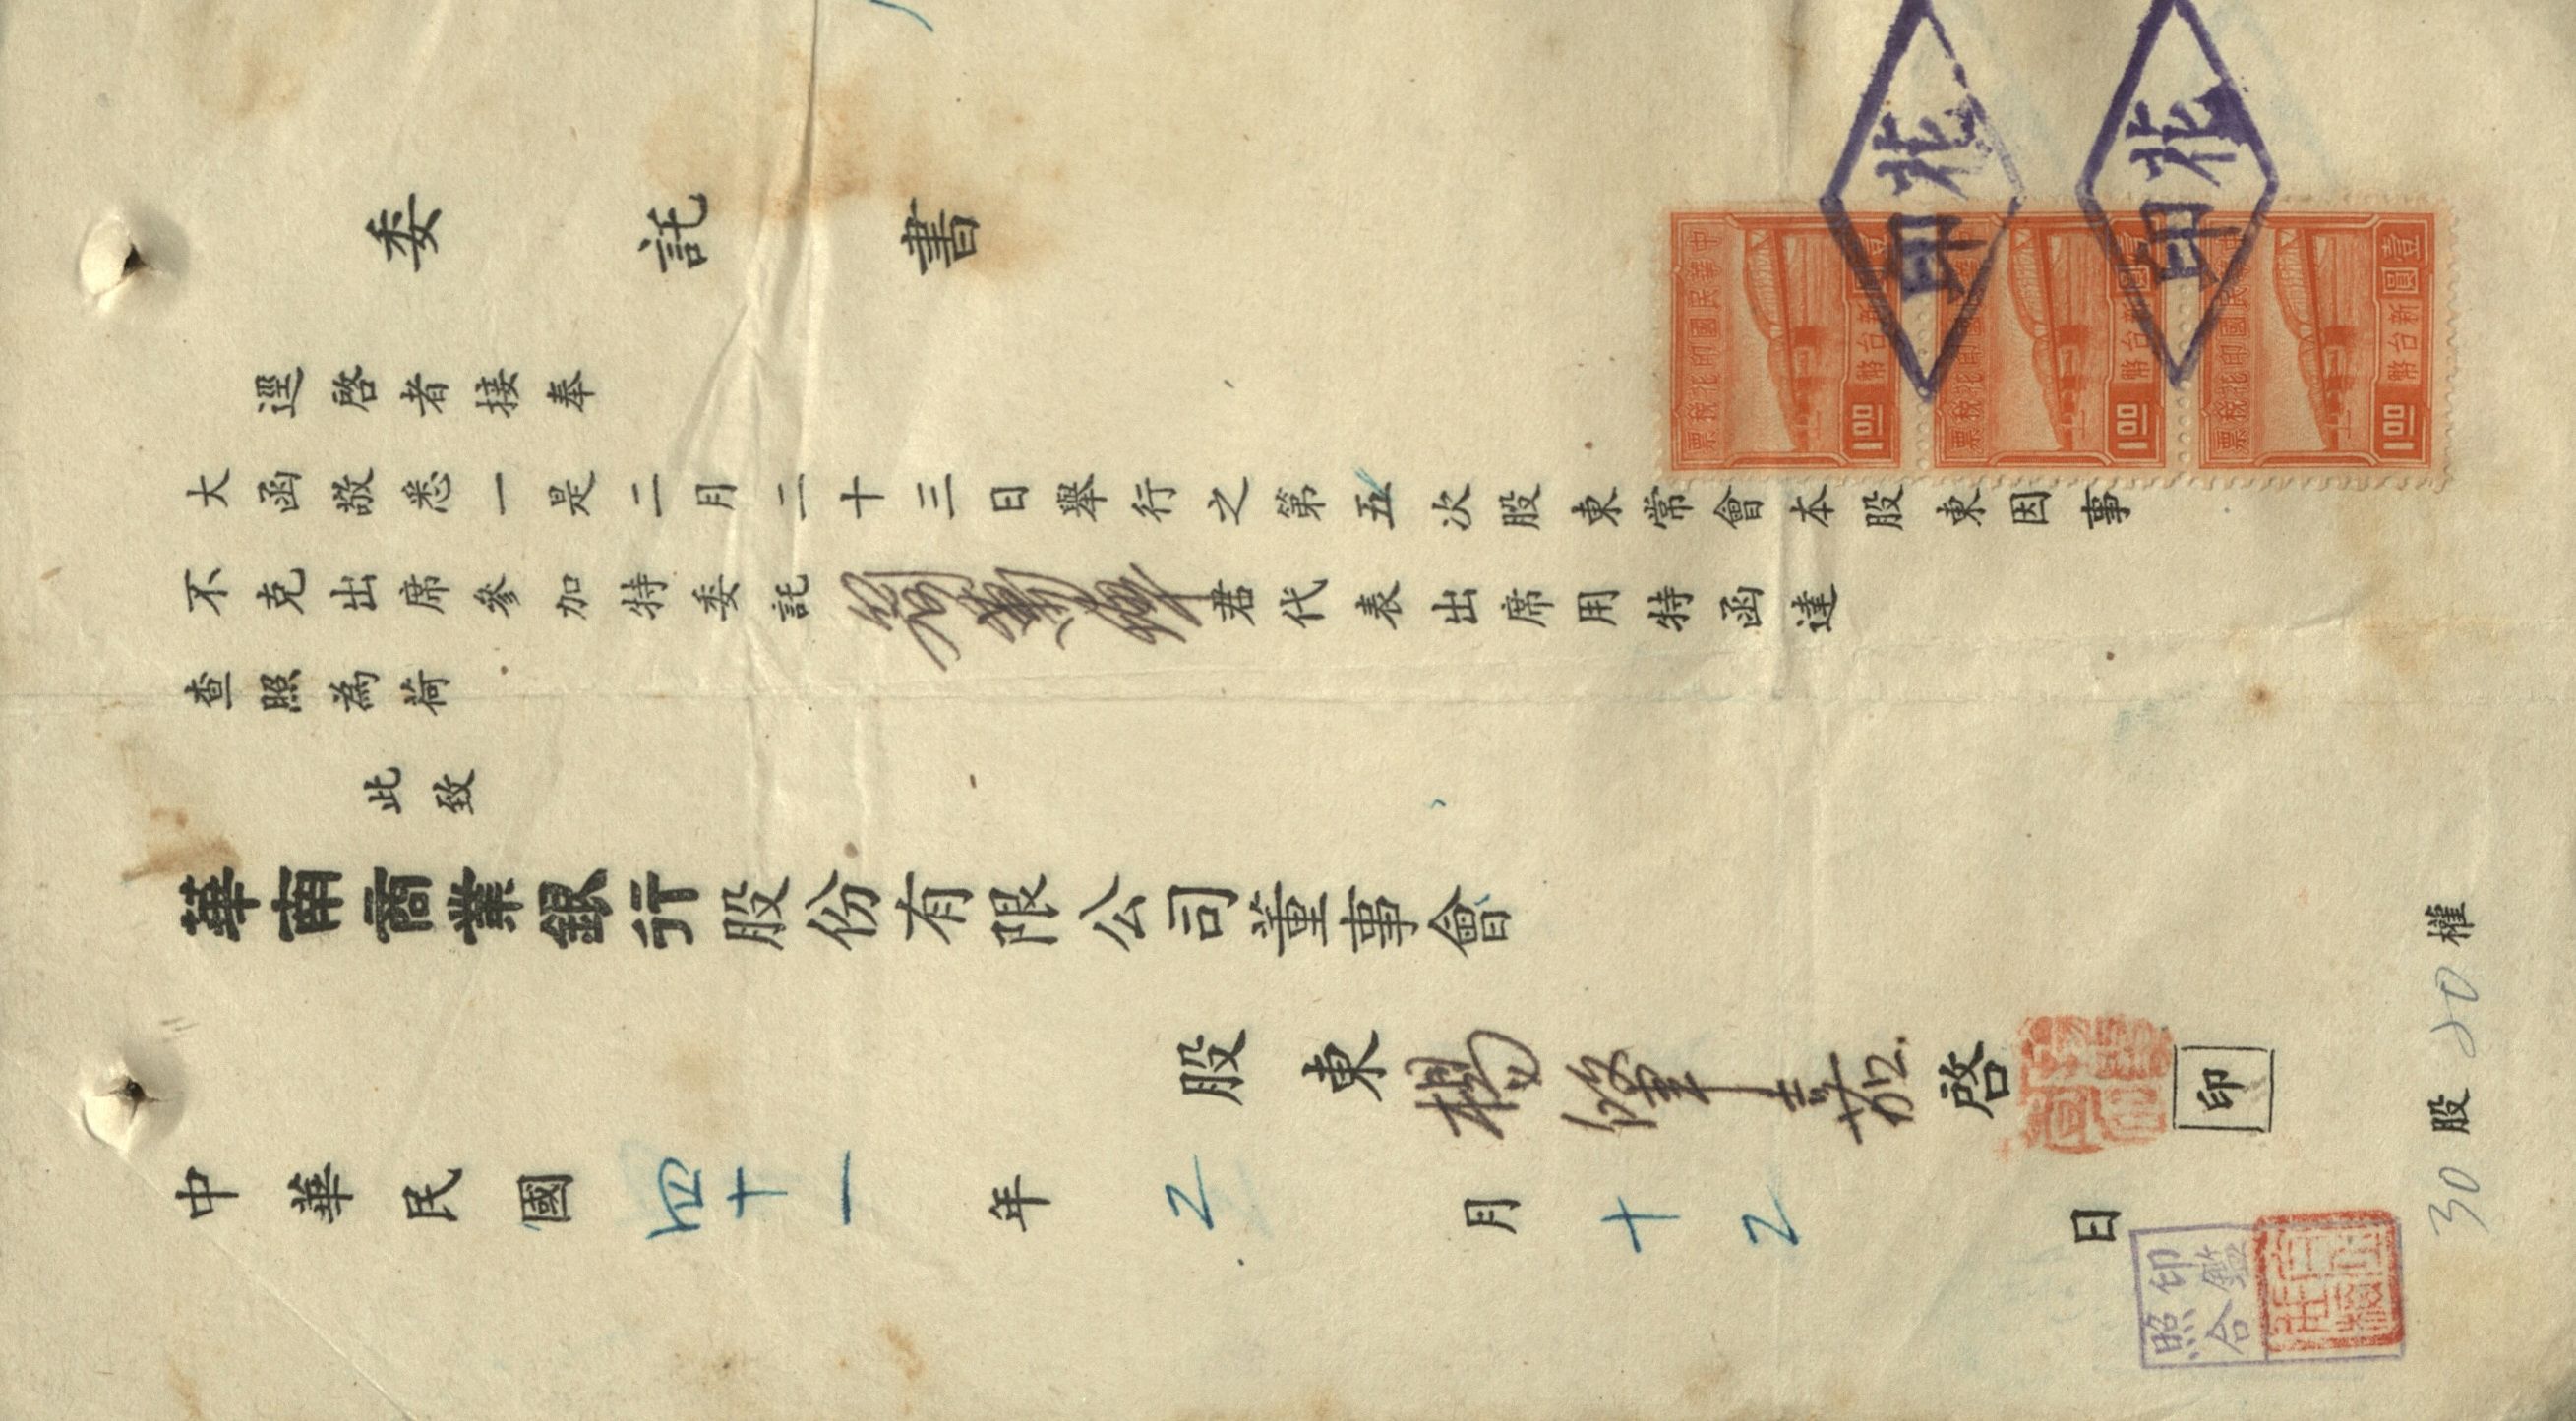 委託書
逕啓者接奉
大函敬悉一是二月二十三日舉行之第五次股東常會本股東因事
不克出席參加特委託
君代表出席用特函達
查照為荷
此致
華南商業銀行股份有限公司董事會
股東楊 啓
印
中華民國四十一年2月十2日
30股20權
印鑑
照合
印花
印花
中華民國印花稅票
壹圓 新台幣 1.00
中華民國印花稅票
壹圓 新台幣 1.00
中華民國印花稅票
壹圓 新台幣 1.00